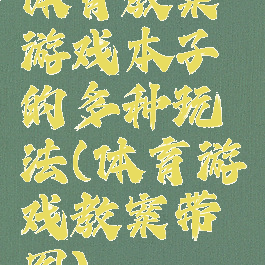 体育教案
游戏本子
的多种玩
法(体育游
戏教案带
图)